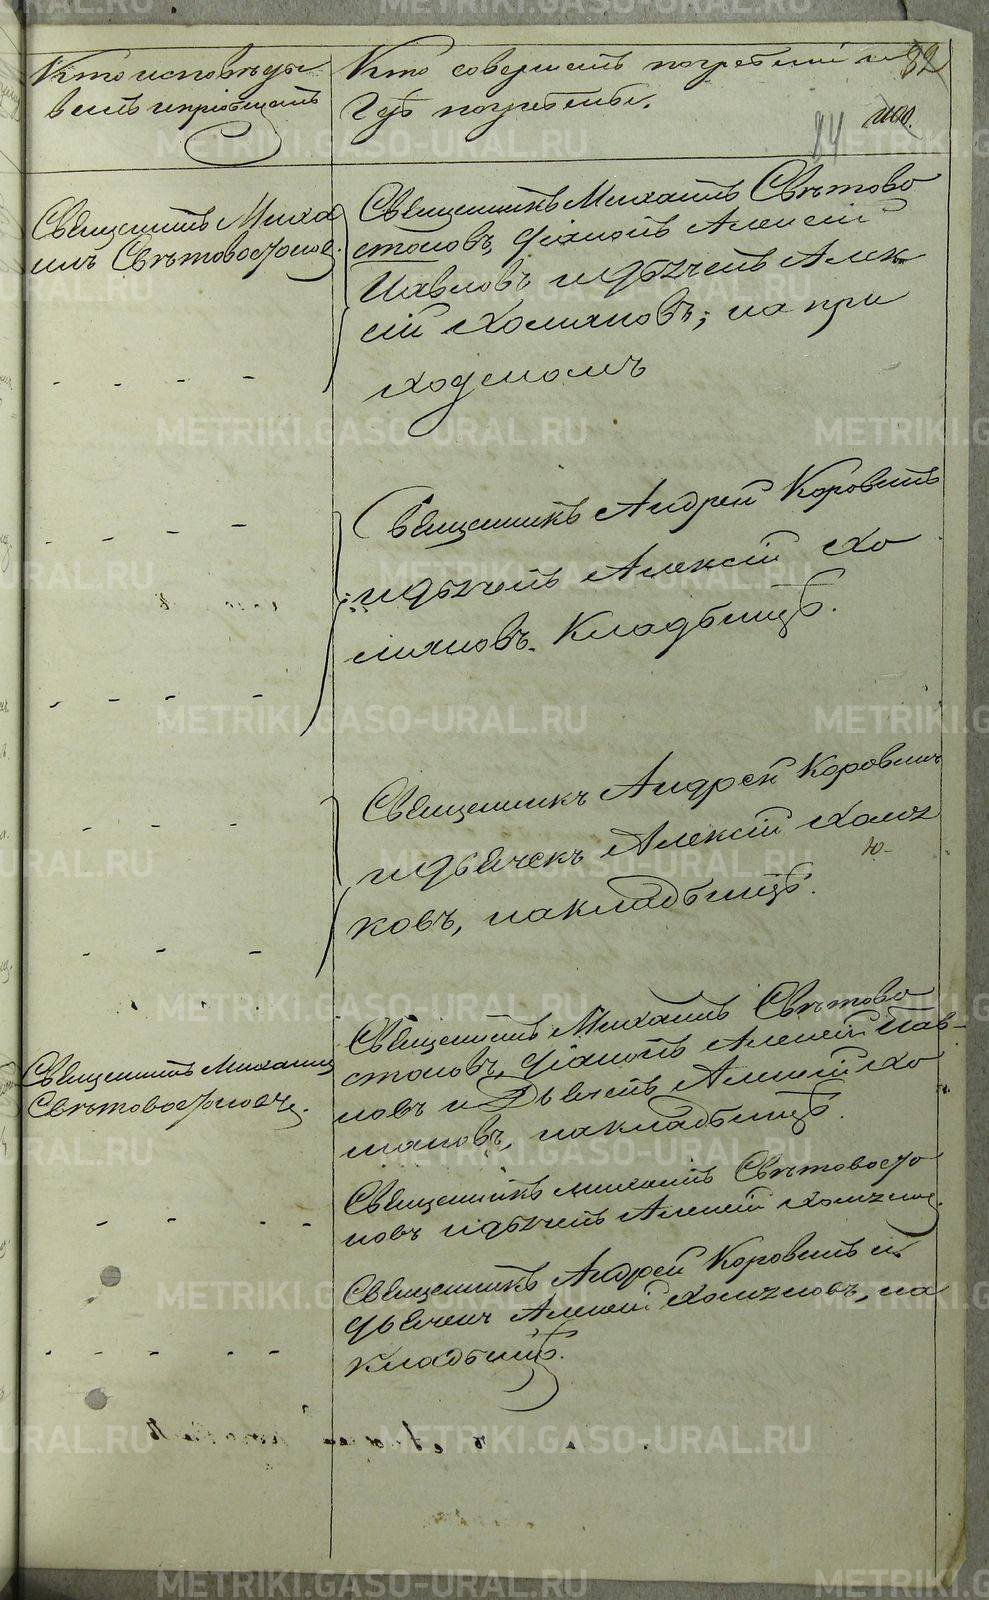 Кто исповѣды
валъ и пріобщалъ
Кто совершалъ погребеніе и
Гдѣ погребены.
82
84
Священникъ Миха
илъ Свѣтовостоковъ.
Священникъ Михаилъ Свѣтово
стоковъ, діаконъ Алексій
Павловъ и дьячекъ Алек
сій Холмяковъ; на при
ходскомъ
Священникъ Андрей Коровинъ
и дьячекъ Алексій Хо
лмяковъ. Кладбищѣ.
Священникъ Андрей Коровинъ
и дьячекъ Алексій Холмя
ковъ, на кладбищѣ.
Священникъ Михаилъ
Свѣтовостоковъ.
Священникъ Михаилъ Свѣтово
стоковъ, діаконъ Алексій Пав-
ловъ и Дьячекъ Алексій Хо
лмяковъ, на кладбищѣ.
Священникъ Михаилъ Свѣтовосто
ковъ и дьячекъ Алексій Холмяковъ.
Священникъ Андрей Коровинъ и
дьячекъ Алексій Холмяковъ, на
кладбищѣ.
METRIKI.GASO-URAL.RU